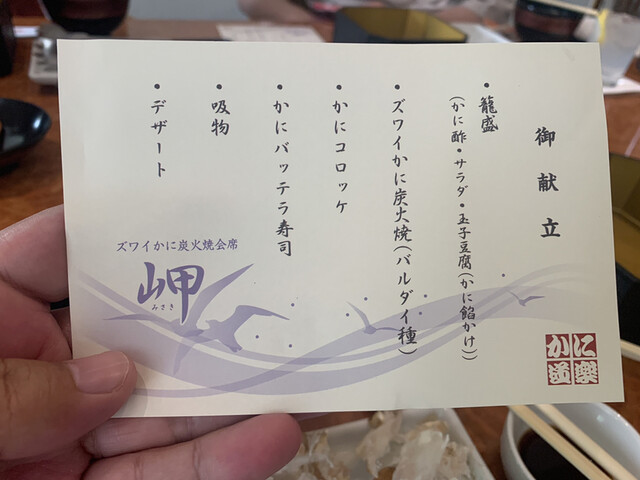 御献立
・籠盛
(かに酢・サラダ・玉子豆腐(かに餡かけ))
・ズワイかに炭火焼(バルダイ種)
・かにコロッケ
・かにバッテラ寿司
・吸物
・デザート
ズワイかに炭火焼会席
岬
みさき
かに道楽